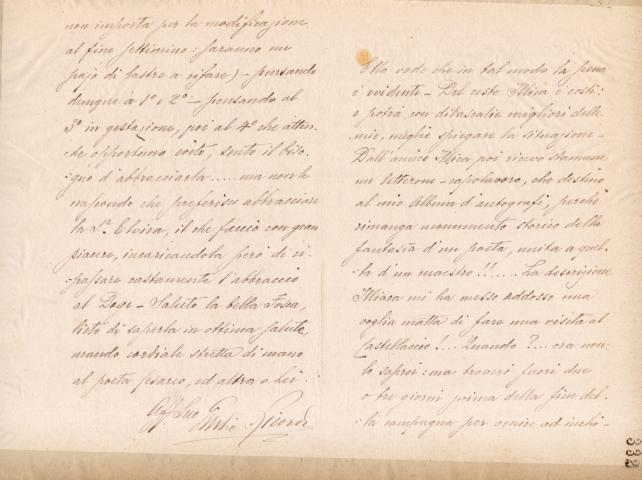 non importa per la modificazione
al fine settimino: saranno un
pajo di lastre a rifare) - pensando
dunque a 1º e 2º - pensando al
3º in gestazione, poi al 4º che atten-
-de opportuno coito, sento il biso-
-gno d'abbracciarla ..... ma non le
nascondo che preferisco abbracciare
la Sª. Elvira, il che faccio con gran
piacere, incaricandola però di ri-
-passare castamente l'abbraccio
al Doge - Saluto la bella Fosca,
lieto di saperla in ottima salute,
mando cordiale stretta di mano
al poeta pesareo, ed altra a Lei.
Aff. Suo Giulio Ricordi
Ella vede che in tal modo la pena
è evidente - Del resto Illica è costì:
e potrà con didascalie migliori delle
mie, meglio spiegare la situazione -
Dall'amico Illica poi ricevo stamane
un letterone - capolavoro, che destino
al mio Album d'autografi, perchè
rimanga monumento storico della
fantasia d'un poeta, unita a quel-
-la d'un maestro!! ..... La descrizione
Illicea mi ha messo addosso una
voglia matta di fare una visita al
Castellaccio! ... Quando? ... ora non
lo saprei: ma troverò fuori due
o tre giorni prima della fine del-
-la campagna per venire ad inchi-
332